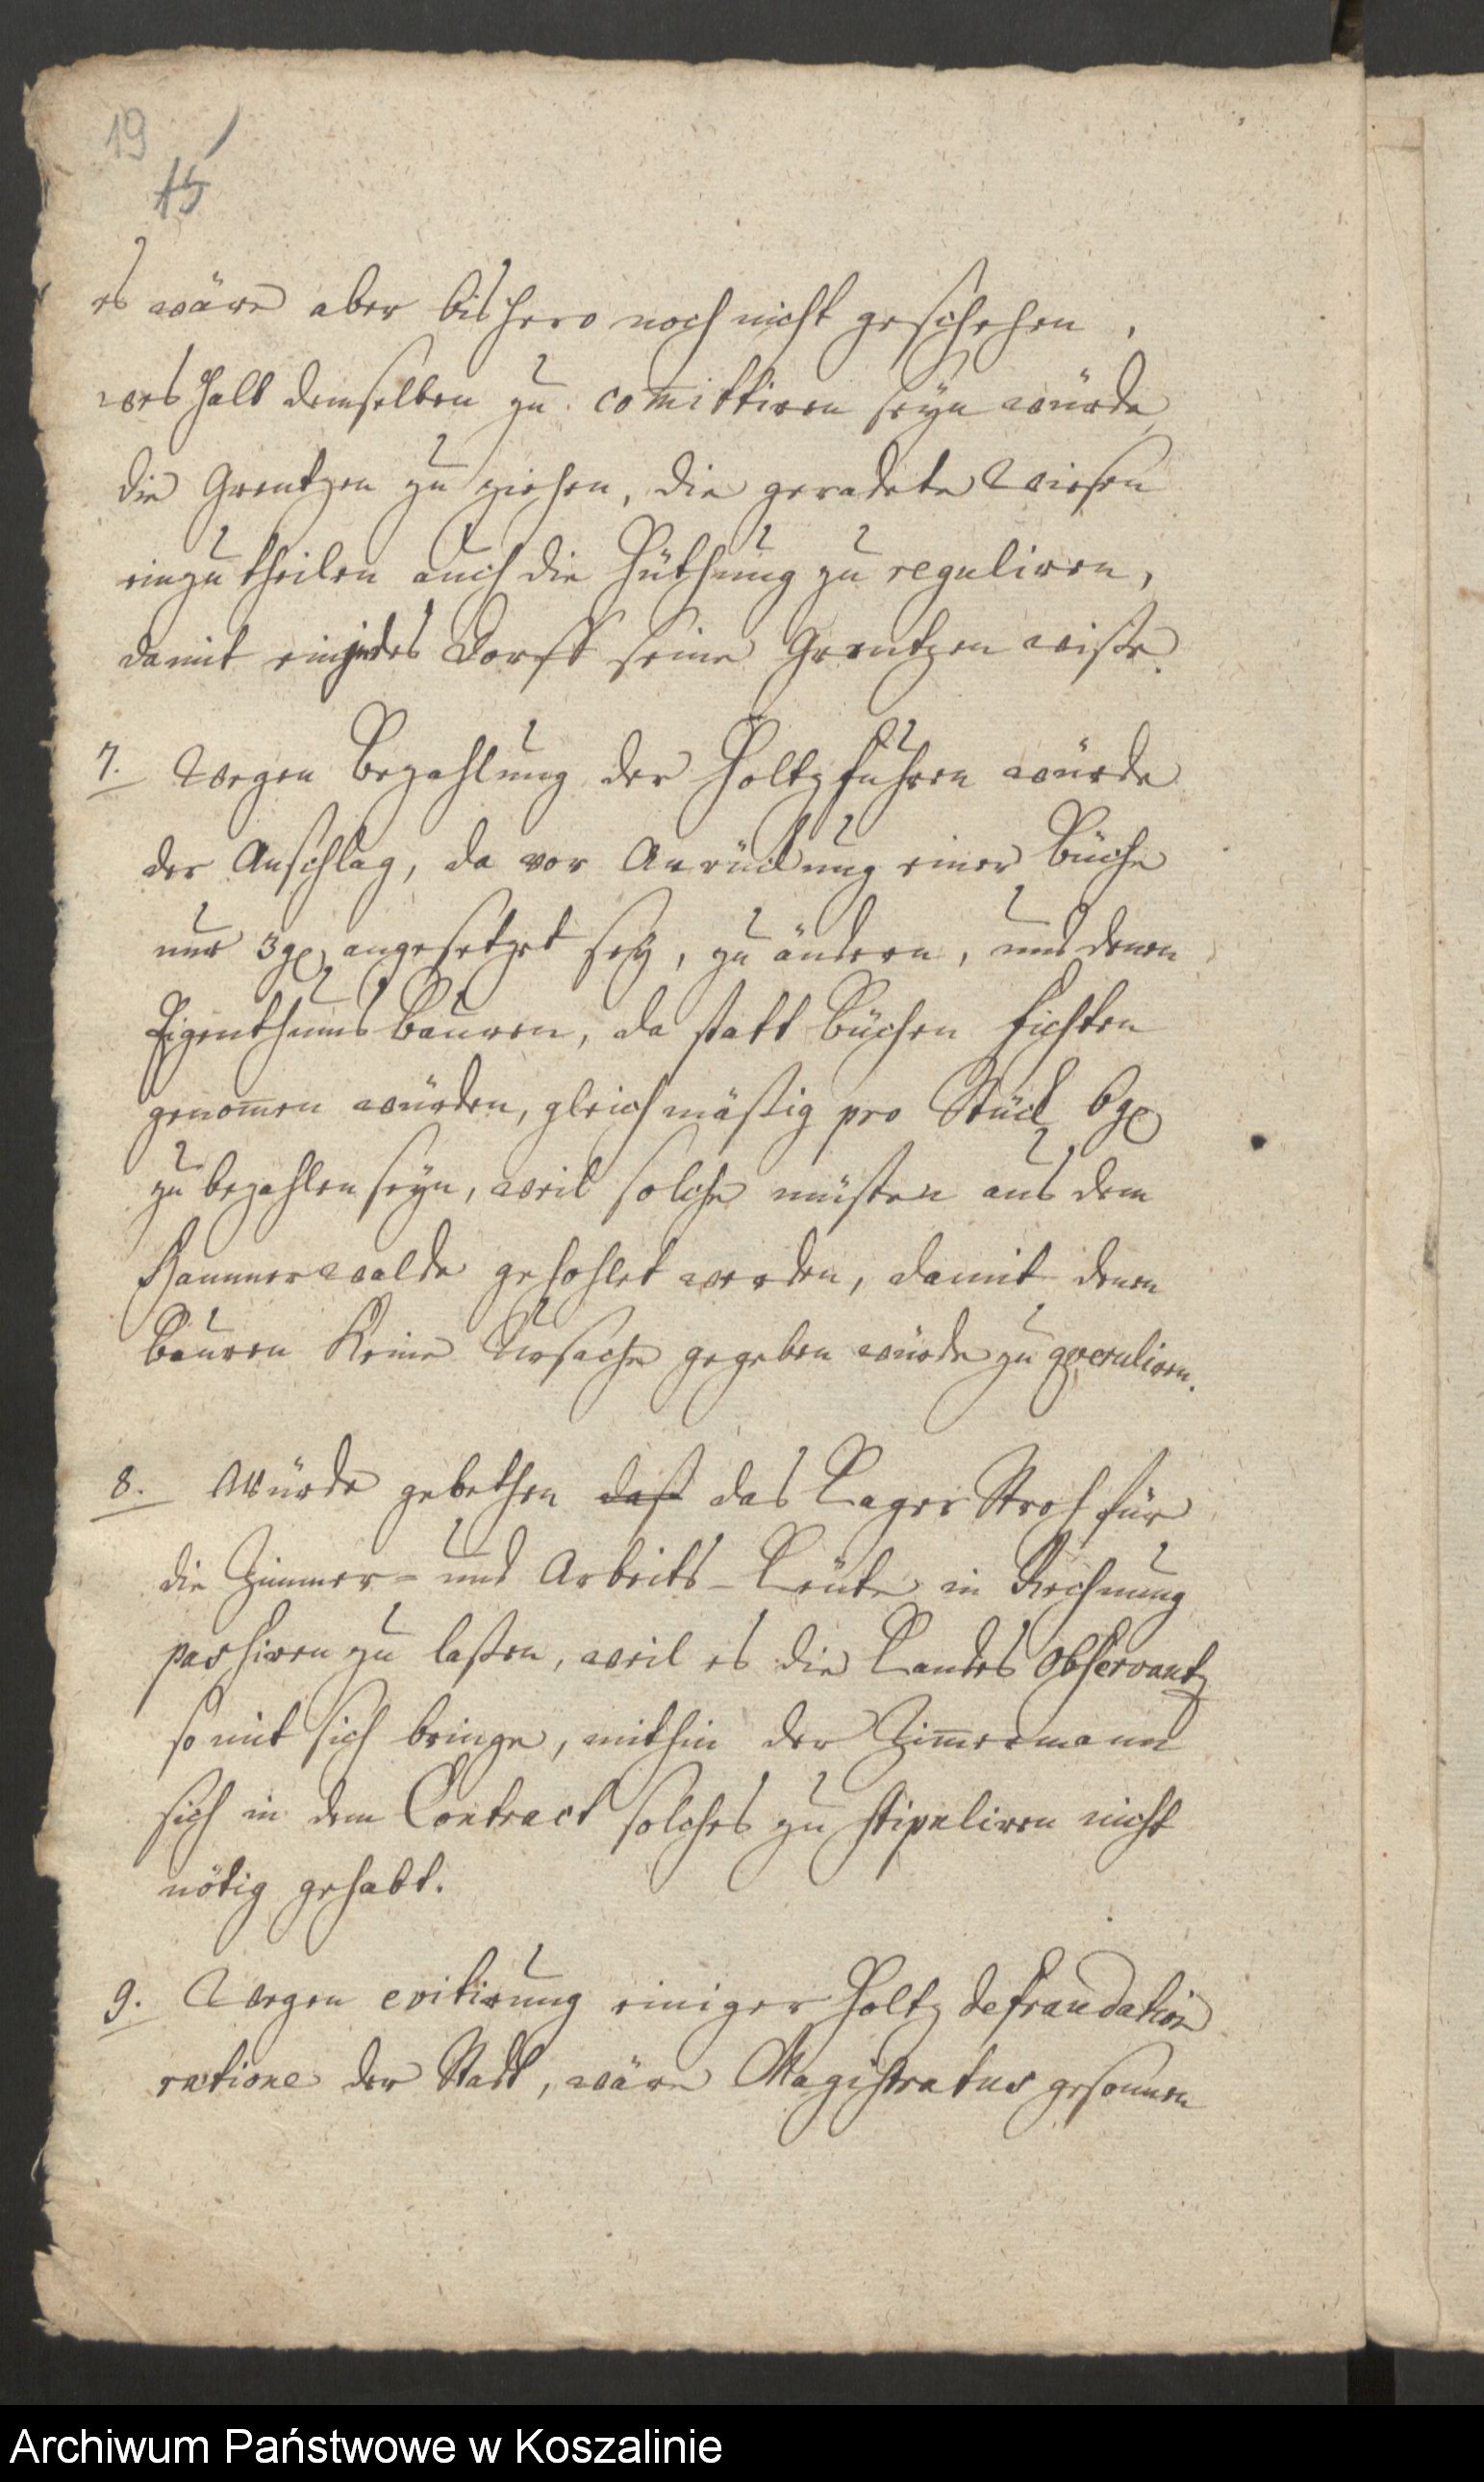 19
15
es wäre aber bishero noch nicht geschehen,
weshalb demselben zu committiren seyn würde
die Grentzen zu ziehen, die geradete Wiesen
einzutheilen auch die Hüthung zu reguliren,
damit ein jedes Dorff seine Grentzen wiße.
7. Wegen Bezahlung der Holtzfuhren würde
der Anschlag, da vor Anrückung einer Büche
nur 3 g angesetzet sey, zu ändern, und denen
Eigenthums Bauren, da statt Büchen Fichten
genom̅en würden, gleichmäßig pro Stück 6 g
zu bezahlen seyn, weil solche müsten aus dem
Hammerwalde gehohlet werden, damit denen
Bauren keine Ursache gegeben würde zu qveruliren.
8. Würde gebethen daß das Lager Stroh für
die Zimmer- und Arbeits-Leüte in Rechnung
passiren zu laßen, weil es die Landes Observantz
so mit sich bringe, mithin der Zim̅ermann
sich in dem Contract solches zu stipuliren nicht
nötig gehabt.
9. Wegen evitirung einiger Holtz defraudation
ratione der Stadt, wäre Magistratus gesonnen
Archiwum Państwowe w Koszalinie